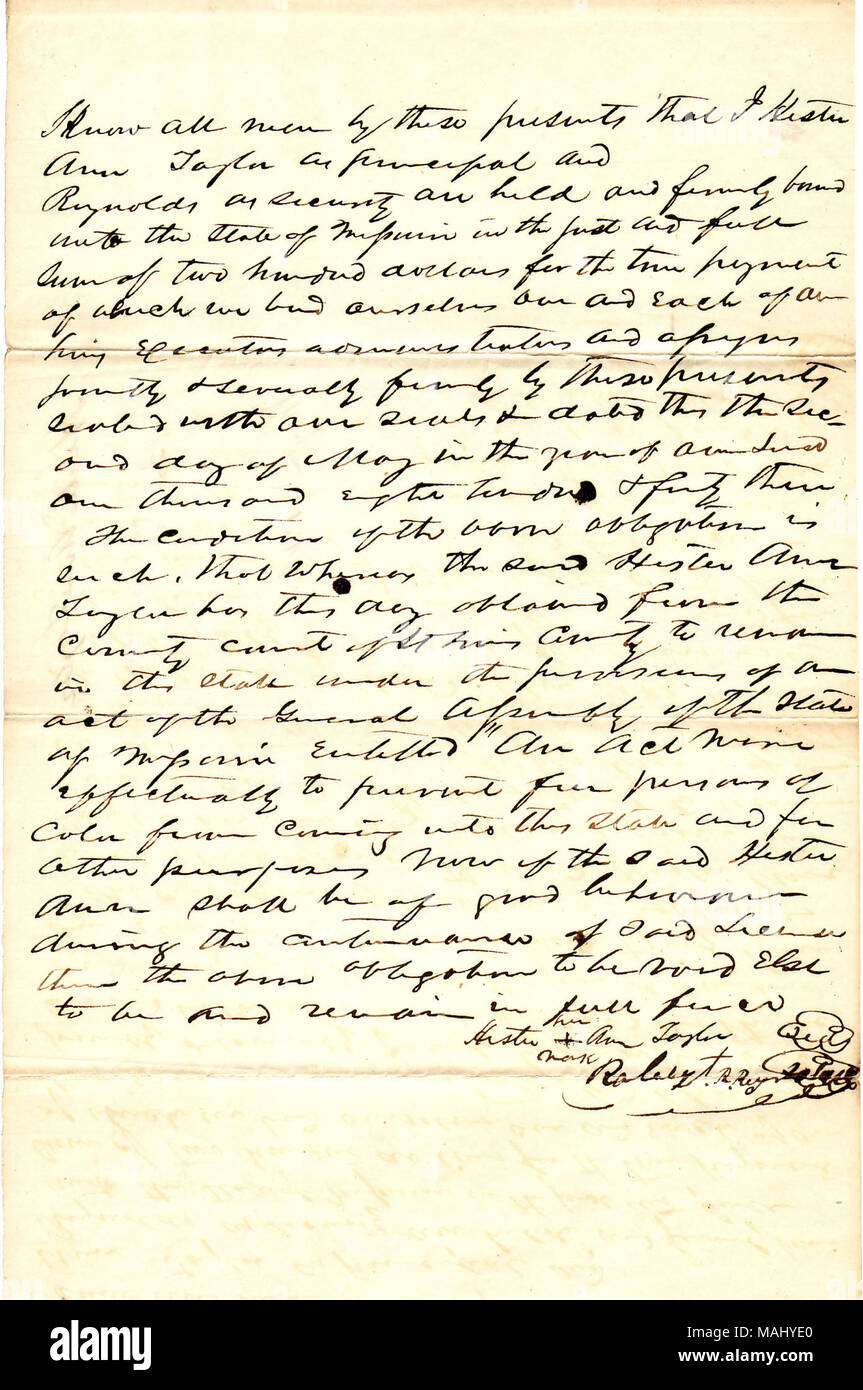 Know all men by these presents that I Hester
Ann Taylor as principal and
Reynolds as security are held and firmly bound
unto the State of Missouri in the just and full
sum of two hundred dollars for the true payment
of which we bind ourselves our and Each of our
heirs Executors administrators and assigns
jointly & severally firmly by these presents
sealed with our seals & dated this the sec-
ond day of May in the year of our Lord
one thousand eight hundred & forty three
The condition of the above obligation is
such, that Whereas the said Hester Ann
Taylor has this day obtained from the
County court of St Louis County to remain
in this state under the provisions of an
act of the General Assembly of the State
of Missouri Entitled "An Act More
effectually to prevent free persons of
Color from Coming into this State and for
other purposes Now if the said Hester
Ann shall be of good behaviour
during the continuance of said License
then the above obligation to be void Else
to be and remain in full force
her
Hester + Ann Taylor Seal
mark
a alamy stock photo
alamy
Image ID: MAHYE0
www.alamy.com